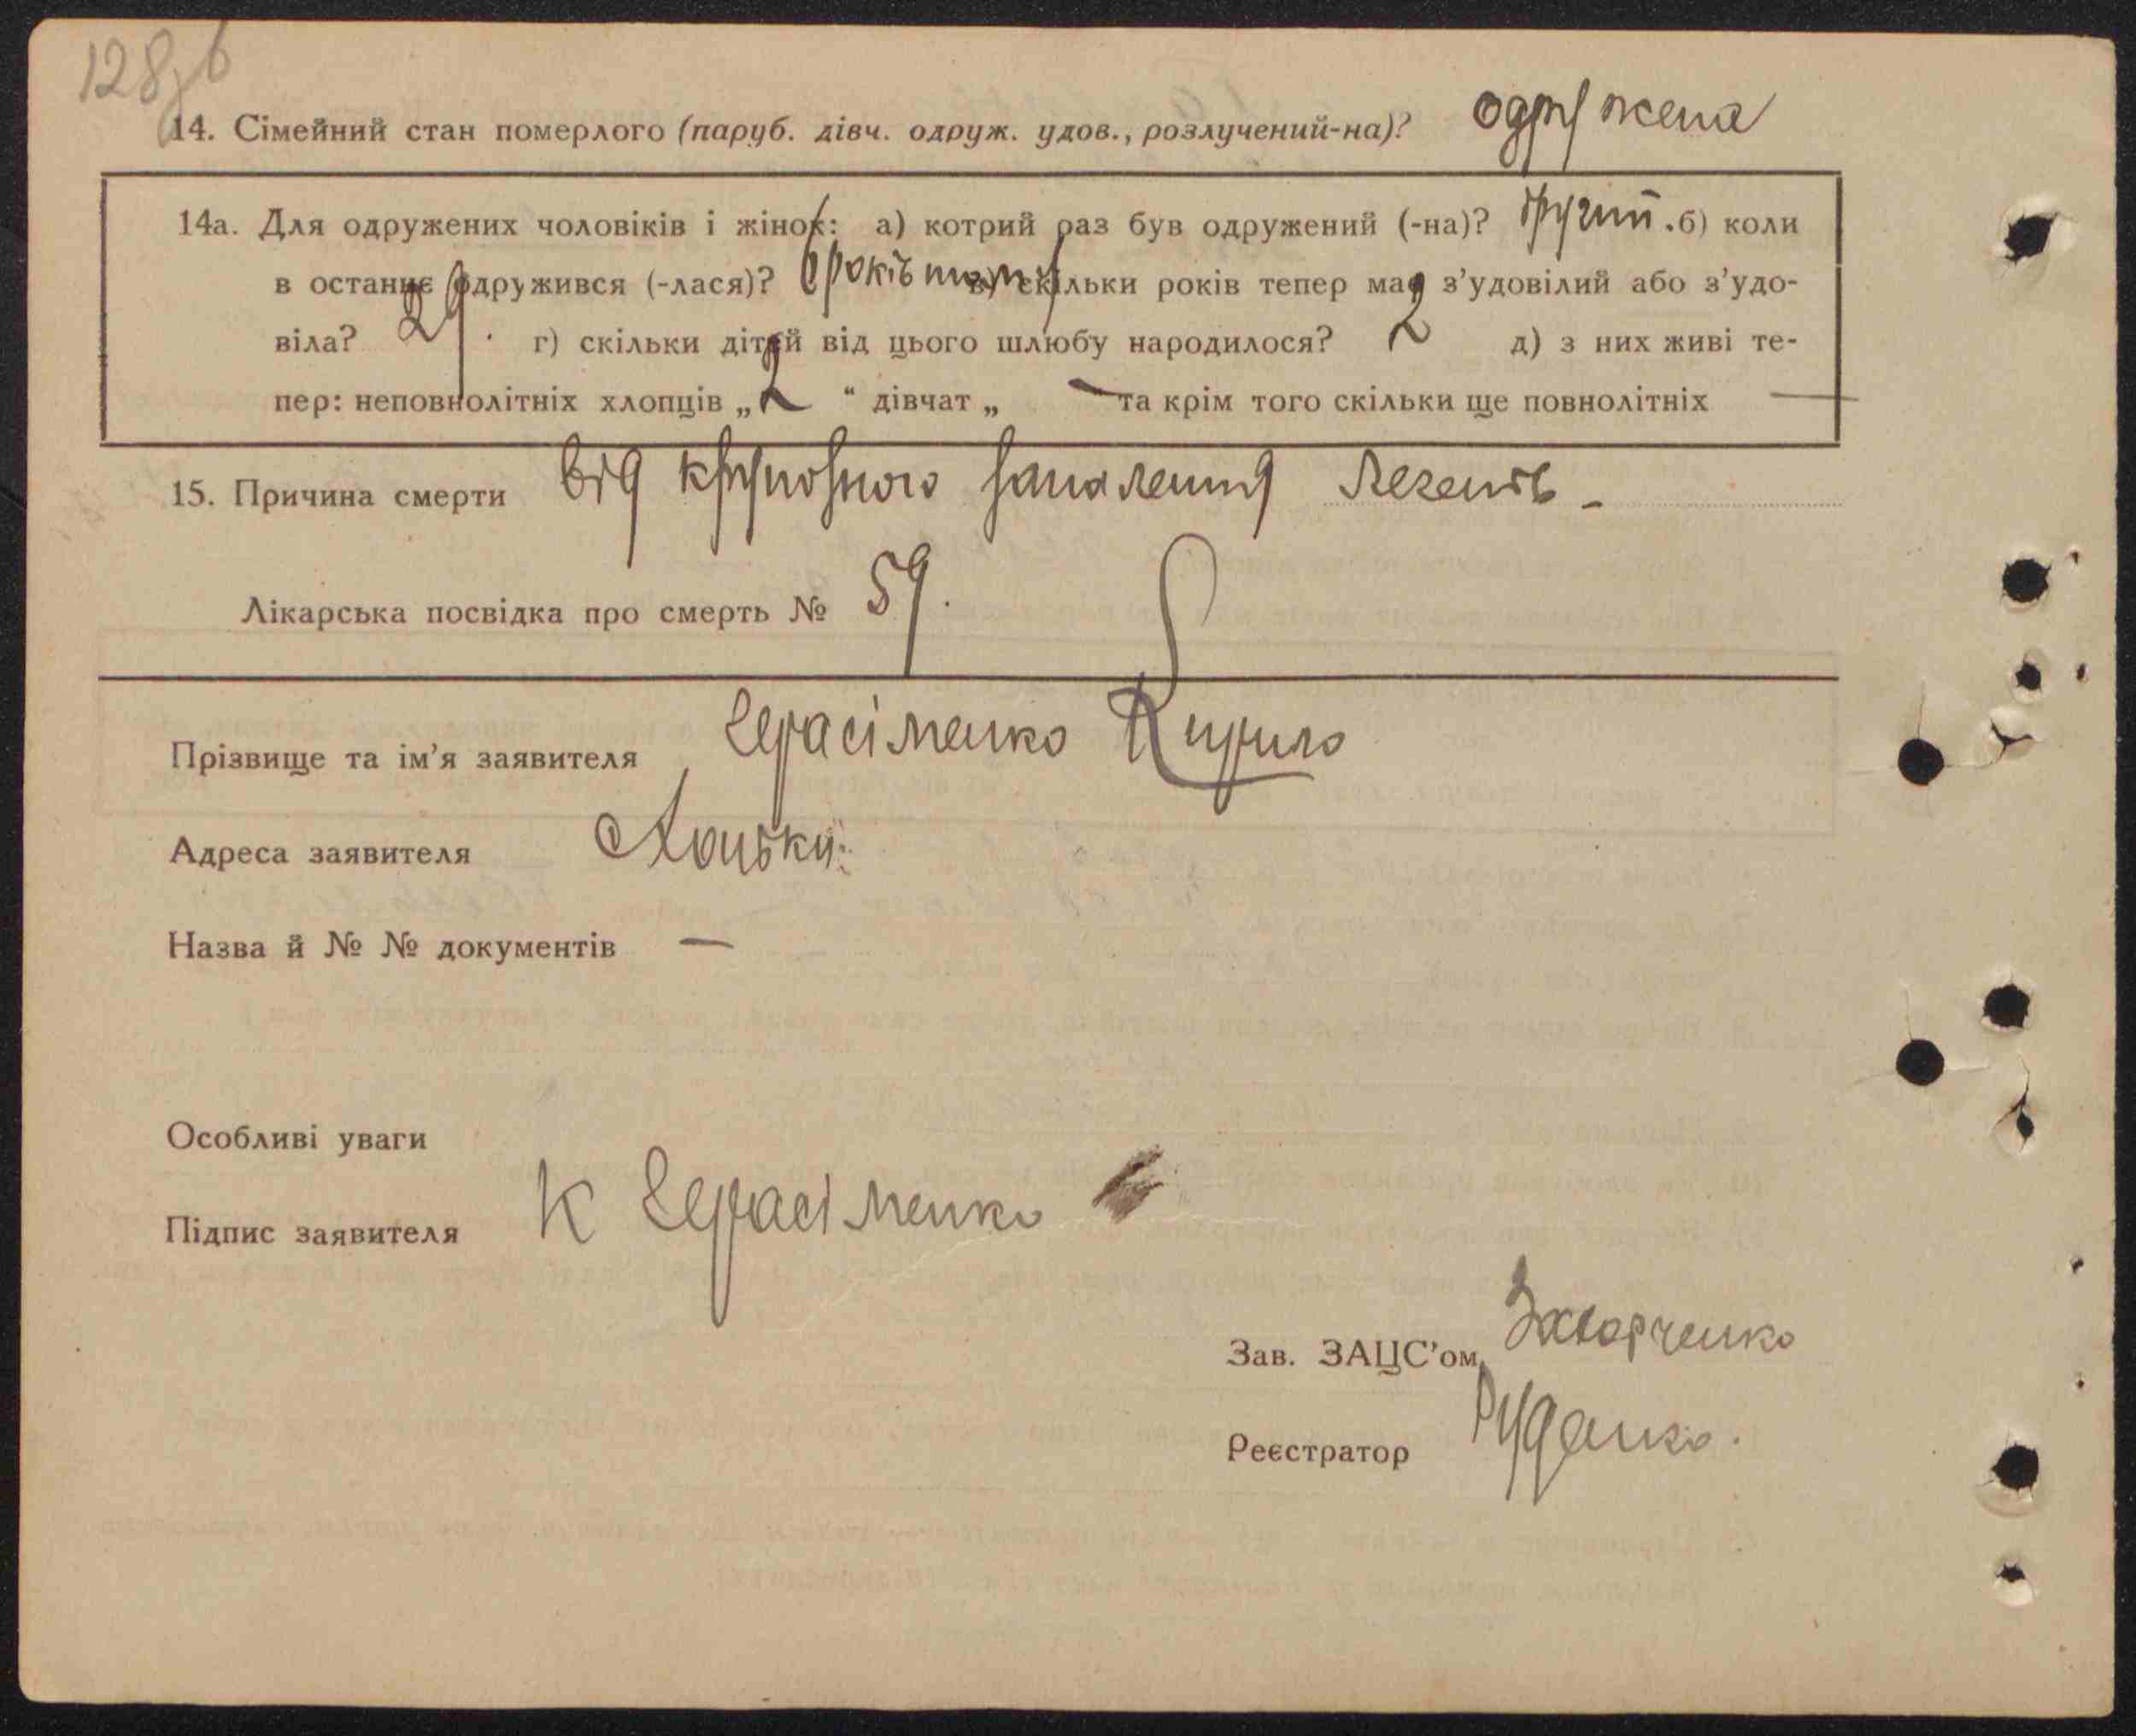 128зв
14. Сімейний стан померлого (паруб. дівч. одруж. удов., розлучений-на)? одружена
14а. Для одружених чоловіків і жінок: а) котрий раз був одружений (-на)? другий. б) коли
в останнє одружився (-лася)? 6 років тому в) скільки років тепер має з’удовілий або з’удо-
віла? 29. г) скільки дітей від цього шлюбу народилося? 2 д) з них живі те-
пер: неповнолітніх хлопців „2“ дівчат „ — та крім того скільки ще повнолітніх —
15. Причина смерти від крупозного запалення легенів -
Лікарська посвідка про смерть № 59.
Прізвище та ім’я заявителя Герасіменко Кирило
Адреса заявителя Хоньки
Назва й № № документів —
Особливі уваги
Підпис заявителя К Герасіменко
Зав. ЗАЦС’ом Захарченко
Реєстратор Руденко.